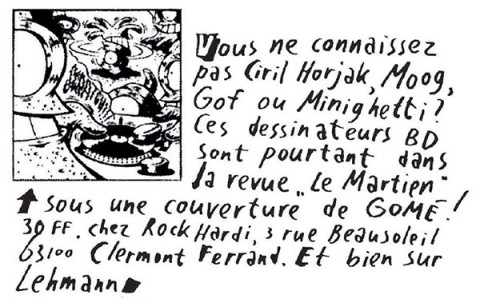 Vous ne connaissez
pas Ciril Horjak, Moog,
Gof ou Minighetti?
Ces dessinateurs BD
sont pourtant dans
la revue „Le Martien"
↑ sous une couverture de GOMÉ!
30 FF. chez Rock Hardi, 3 rue Beausoleil
63100 Clermont Ferrand. Et bien sur
Lehmann